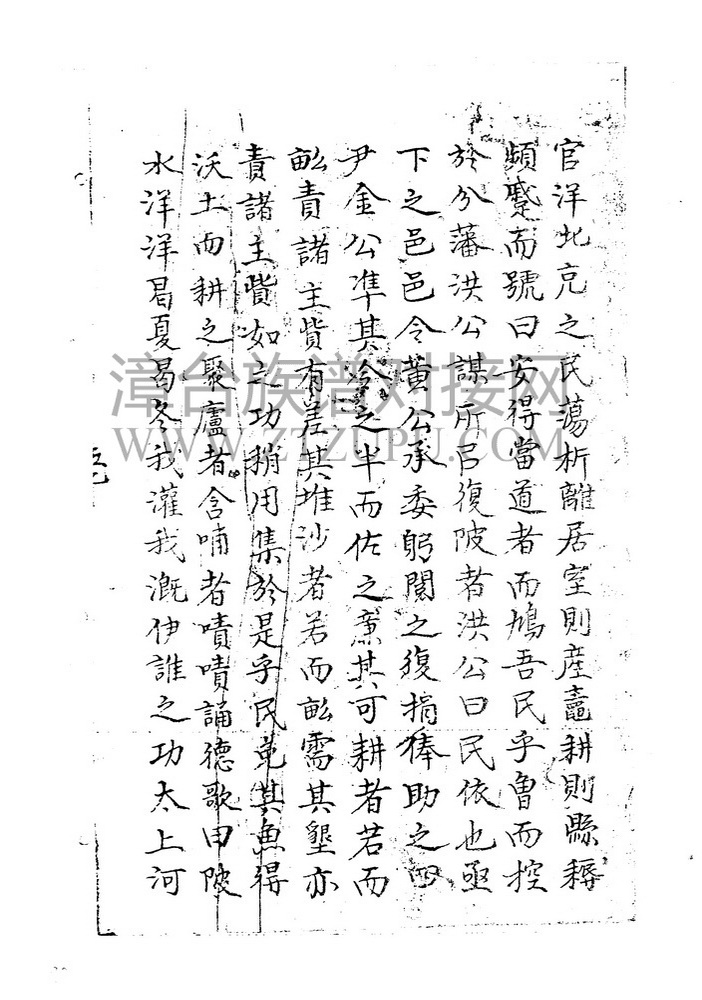 官洋北克之民蕩析離居室則産鼃耕則縣耨
頻蹙而號曰安得當道者而鳩吾民乎魯而控
於分藩洪公謀所㠯復陂者洪公曰民依也亟
下之邑邑令黄公承委躬閱之復捐俸助之四
尹金公準其冷之半而佐之藁其可耕者若而
畝責諸主貲有差其堆沙者若而畝需其墾亦
責諸主貲如之功稍用集於是乎民免其魚得
沃土而耕之聚廬者含哺者嘖嘖誦德歌曰陂
水洋洋曷夏曷冬我灌我溉伊誰之功太上河
漳台族谱对接网
WWW.ZTZUPU.COM